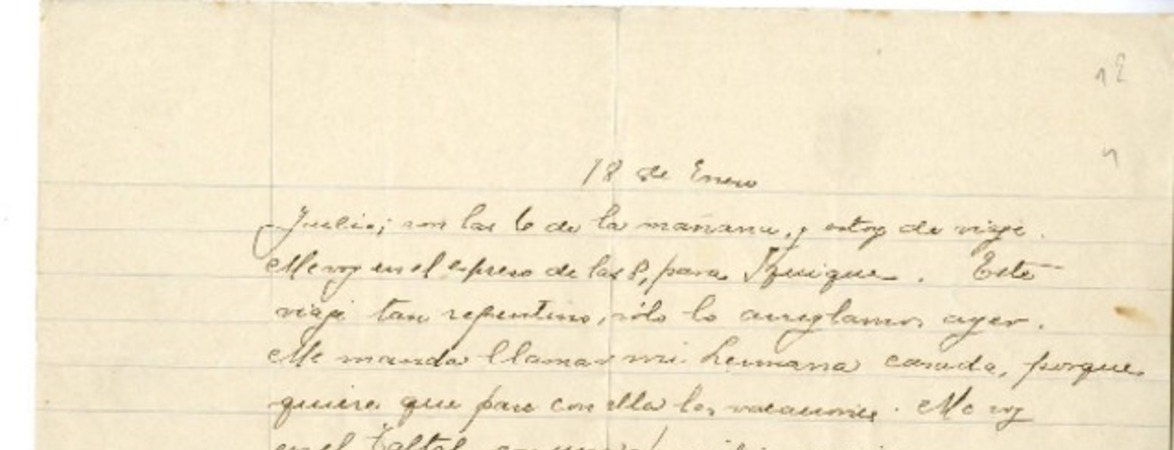 12
18 de Enero
Julio; son las 6 de la mañana, y estoy de viaje.
Me voy en el espreso de las 8, para Iquique. Este
viaje tan repentino, sólo lo arreglamos ayer.
Me manda llamar mi hermana casada, porque
quiere que pase con ella las vacaciones. Me voy
en el Taltal